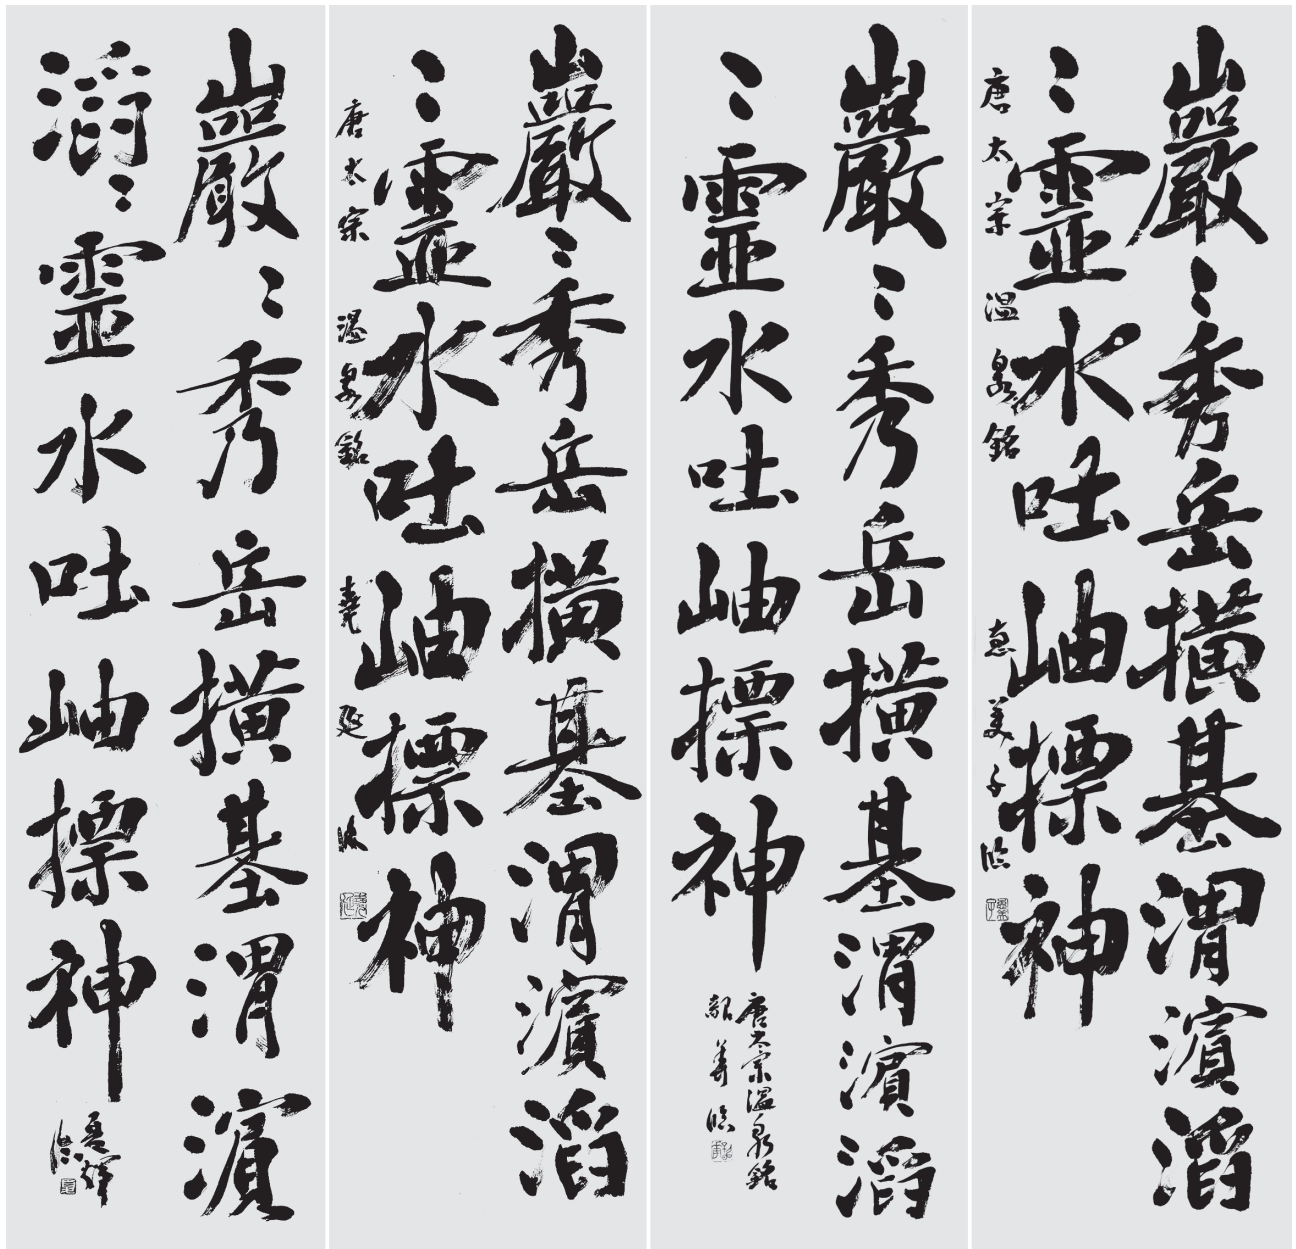 巖〻秀岳横基渭濱滔
〻靈水吐岫標神
唐太宗 温泉銘 恵美子臨
巖〻秀岳横基渭濱滔
〻靈水吐岫標神
唐太宗温泉銘
臨
巖〻秀岳横基渭濱滔
〻靈水吐岫標神
唐太宗 温泉銘 堯延臨
巖〻秀岳横基渭濱
滔〻靈水吐岫標神
輝
臨